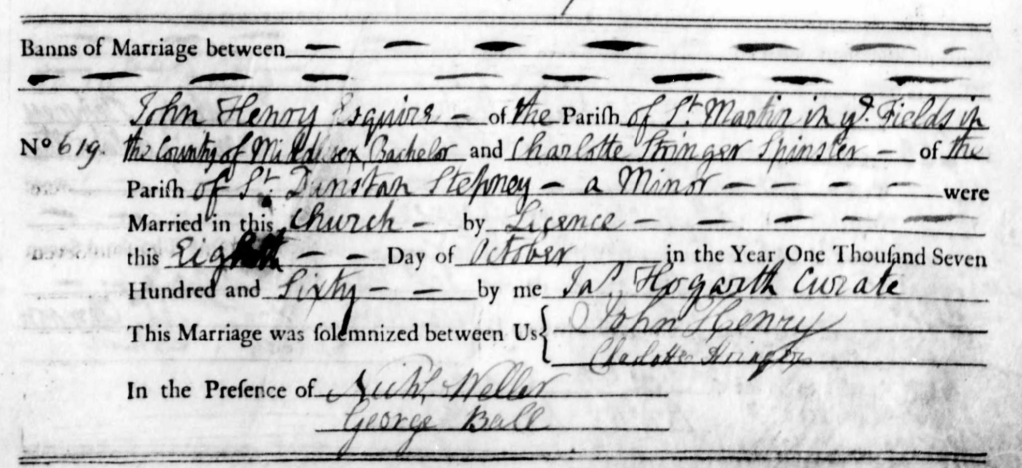 Banns of Marriage between — — — — — — —
— — — — — — — — —
John Henry Esquire — of the Pariſh of St. Martin in ye. Fields in
No 619. the County of Middlesex Bachelor and Charlotte Stringer Spinster — of the
Pariſh of St. Dunstan Stepney — a Minor — — — — were
Married in this Church — by Licence — — — — — —
this Eighth — — Day of October in the Year One Thouſand Seven
Hundred and Sixty — — by me Jas. Hogarth Curate
This Marriage was ſolemnized between Us { John Henry
Charlotte Stringer
In the Preſence of Nichs. Weller
George Ball